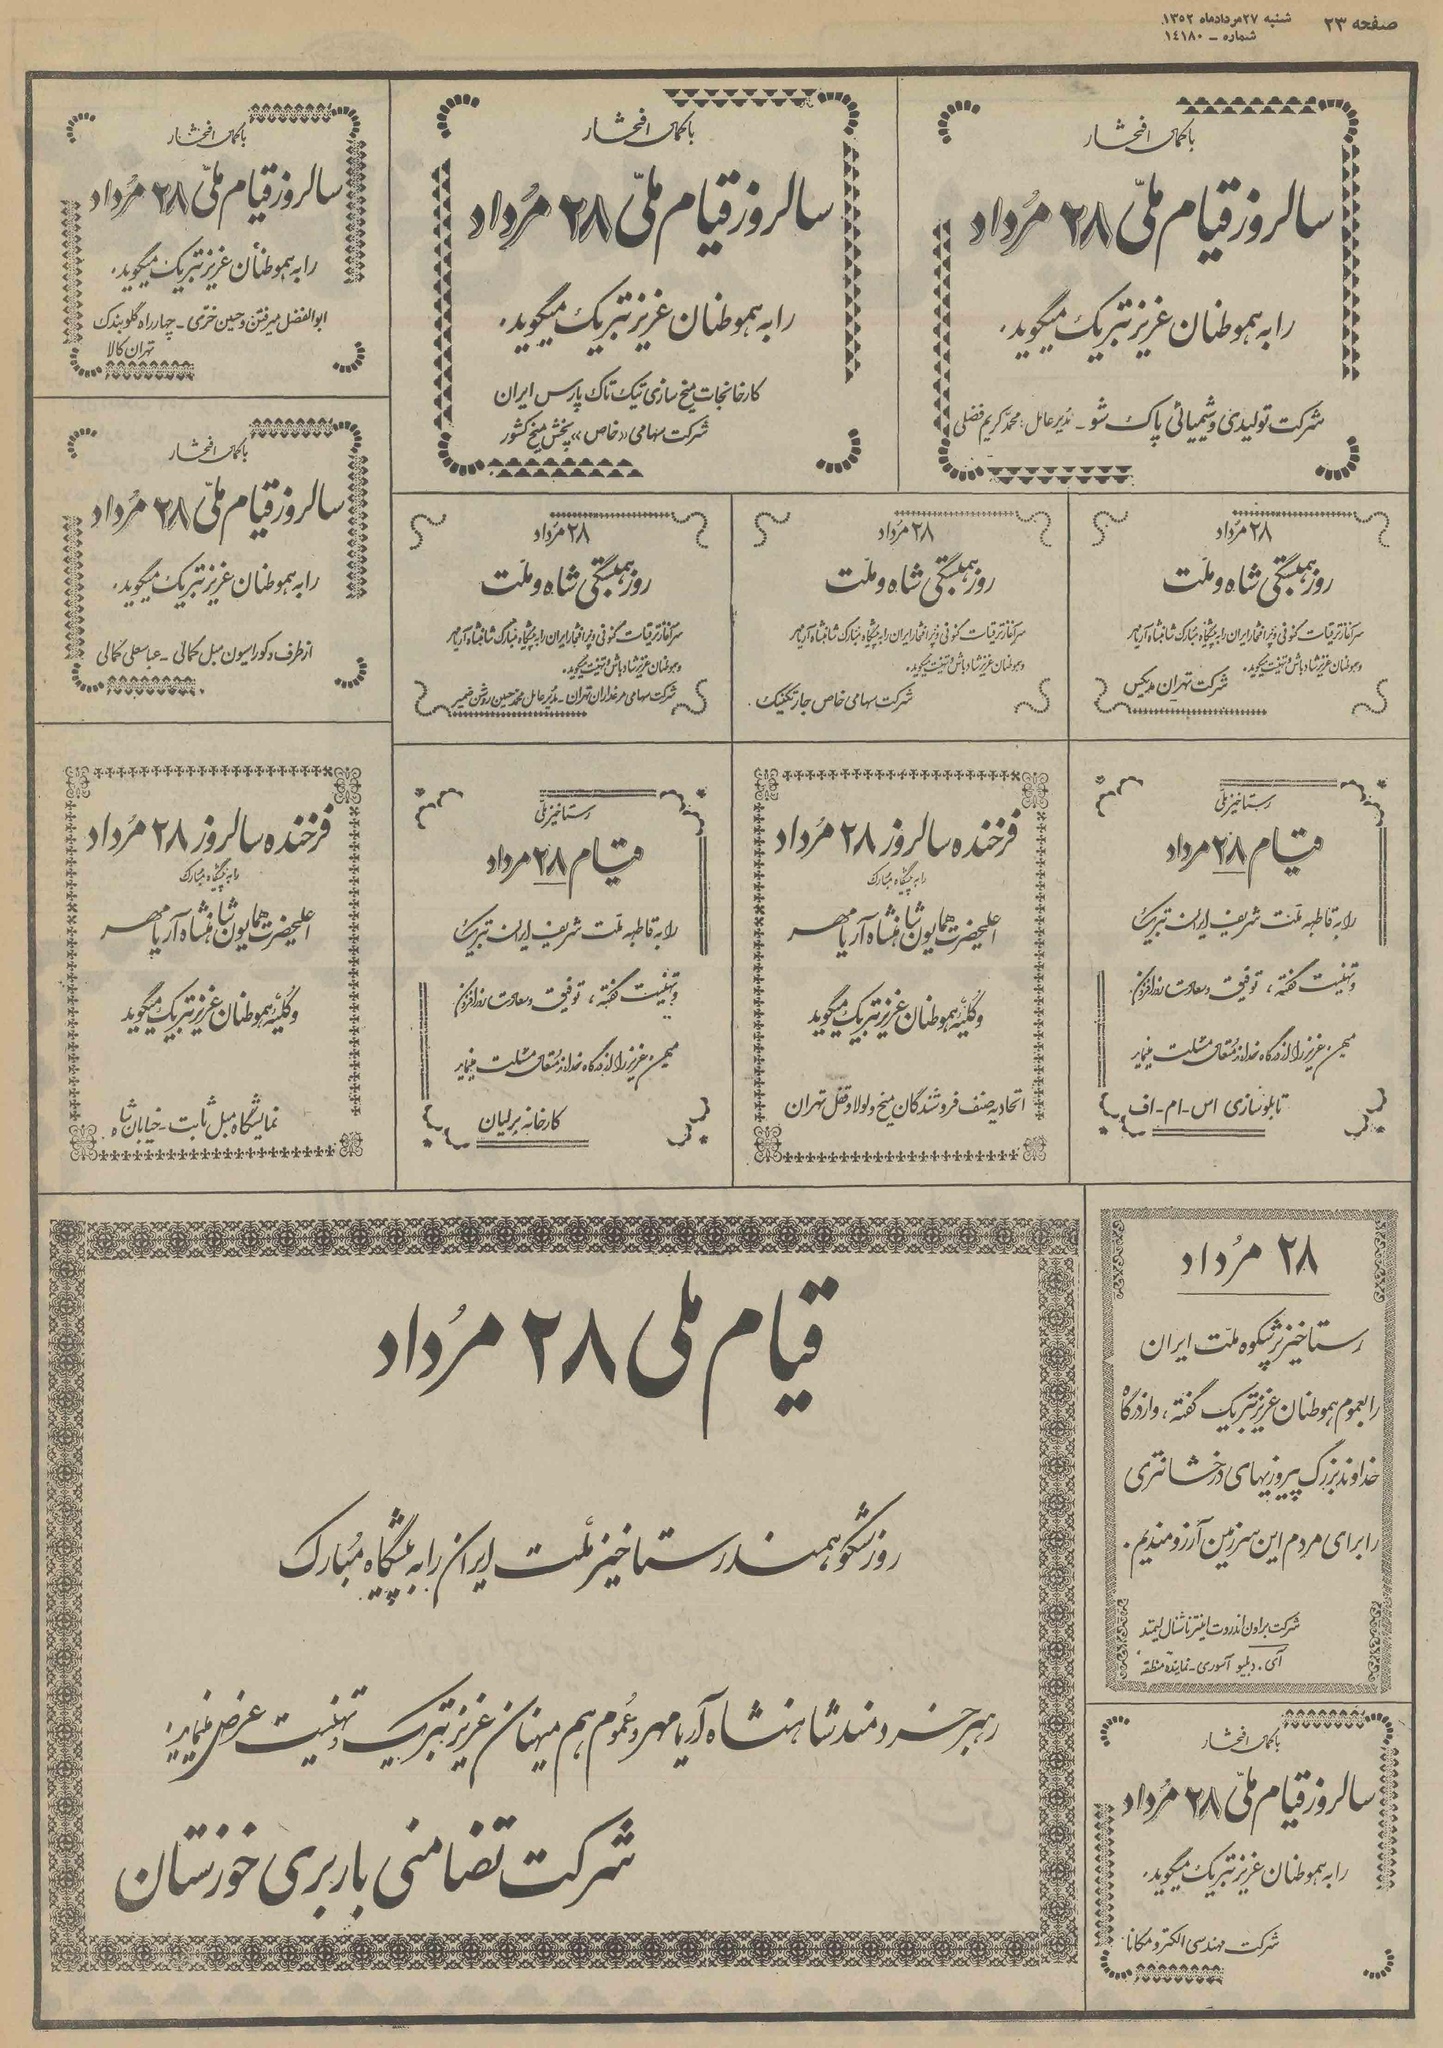 صفحه ۲۳
شنبه ۲۷ مردادماه ۱۳۵۲
شماره – ۱۴۱۸۰
با کمال افتخار
سالروز قیام ملّی ۲۸ مُرداد
را به هموطنان عزیز تبریک میگوید.
شرکت تولیدی و شیمیائی پاک شو – مدیر عامل: محمد کریم فضلی
با کمال افتخار
سالروز قیام ملّی ۲۸ مُرداد
را به هموطنان عزیز تبریک میگوید.
کارخانجات میخ سازی تیک تاک پارس ایران
شرکت سهامی «خاص» پخش میخ کشور
با کمال افتخار
سالروز قیام ملّی ۲۸ مُرداد
را به هموطنان عزیز تبریک میگوید.
ابوالفضل میرفتن و حسین خزی – چهارراه گلوبندک
تهران کالا
با کمال افتخار
سالروز قیام ملّی ۲۸ مُرداد
را به هموطنان عزیز تبریک میگوید.
از طرف دکوراسیون مبل کمالی – عباسعلی کمالی
۲۸ مُرداد
روز همبستگی شاه و ملّت
سرآغاز ترقیات کنونی و پر افتخار ایران را به پیشگاه مبارک شاهنشاه آریامهر
و هموطنان عزیز شادباش و تهنیت میگوید.
شرکت تهران
۲۸ مُرداد
روز همبستگی شاه و ملّت
سرآغاز ترقیات کنونی و پر افتخار ایران را به پیشگاه مبارک شاهنشاه آریامهر
و هموطنان عزیز شادباش و تهنیت میگوید.
شرکت سهامی خاص جار تکنیک
۲۸ مُرداد
روز همبستگی شاه و ملّت
سرآغاز ترقیات کنونی و پر افتخار ایران را به پیشگاه مبارک شاهنشاه آریامهر
و هموطنان عزیز شادباش و تهنیت میگوید.
شرکت سهامی مرغداران تهران – مدیر عامل محمد حسین روشن ضمیر
رستاخیز ملی
قیام ۲۸ مرداد
را به قاطبه ملّت شریف ایران تبریک
و تهنیت گفته، توفیق و سعادت روزافزون
میهن عزیز را از درگاه خداوند متعال مسئلت مینماید
تابلوسازی اس-ام-اف
فرخنده سالروز ۲۸ مُرداد
را به پیشگاه مبارک
اعلیحضرت همایون شاهنشاه آریامهر
و کلیّه هموطنان عزیز تبریک میگوید
اتحادیه صنف فروشندگان میخ و لولا و قفل تهران
رستاخیز ملی
قیام ۲۸ مرداد
را به قاطبه ملّت شریف ایران تبریک
و تهنیت گفته، توفیق و سعادت روزافزون
میهن عزیز را از درگاه خداوند متعال مسئلت مینماید
کارخانه برلیان
فرخنده سالروز ۲۸ مُرداد
را به پیشگاه مبارک
اعلیحضرت همایون شاهنشاه آریامهر
و کلیّه هموطنان عزیز تبریک میگوید
نمایشگاه مبل ثابت – خیابان شاه
۲۸ مُرداد
رستاخیز پرشکوه ملّت ایران
را بعموم هموطنان عزیز تبریک گفته، و از درگاه
خداوند بزرگ پیروزیهای درخشانتری
را برای مردم این سرزمین آرزومندیم.
شرکت براون اندروت اینترناشنال لیمتد
آی. دبلیو آسوری – نماینده منطقه
با کمال افتخار
سالروز قیام ملّی ۲۸ مُرداد
را به هموطنان عزیز تبریک میگوید.
شرکت مهندسی الکترو مکانا
قیام ملی ۲۸ مُرداد
روز شکوهمند رستاخیز ملّت ایران را به پیشگاه مبارک
رهبر خردمند شاهنشاه آریامهر و عموم هم میهنان عزیز تبریک و تهنیت عرض مینماید:
شرکت تضامنی باربری خوزستان